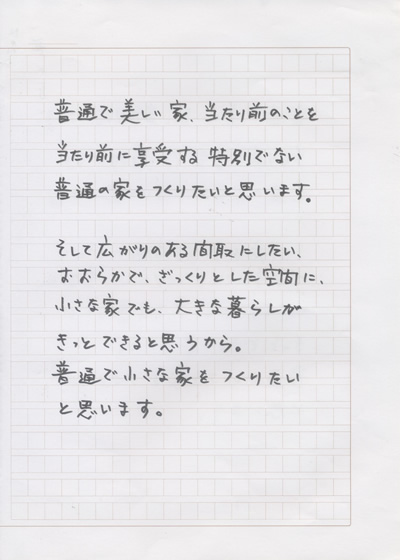 普通で美しい家、当たり前のことを
当たり前に享受する特別でない
普通の家をつくりたいと思います。
そして広がりのある間取にしたい、
おおらかで、ざっくりとした空間に、
小さな家でも、大きな暮らしが
きっとできると思うから。
普通で小さな家をつくりたい
と思います。